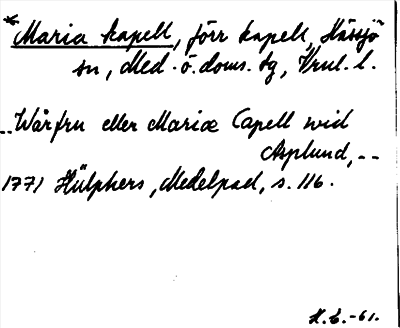 *Maria kapell, förr kapell, Hässjö
sn, Med. ö. doms. tg, Vnul. l.
..Wårfru eller Mariæ Capell wid
Asplund, --
1771 Hülphers, Medelpad, s. 116.
H.E.-61.